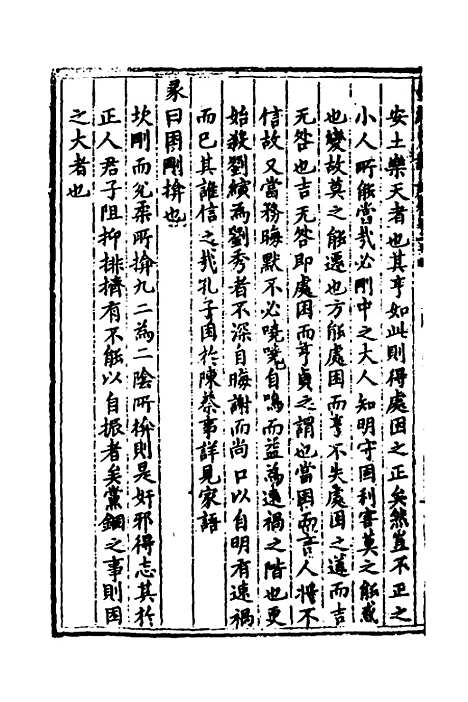 安土樂天者也其亨如此則得處困之正矣然豈不正之
小人所能當哉必剛中之大人知明守固利害莫之能惑
也變故莫之能遷也方能處困而亨不失處困之道而吉
无咎也吉无咎即處困而亨貞之謂也當困而言人將不
信故又當務晦默不必嘵嘵自鳴而益為速禍之階也更
始殺劉縯為劉秀者不深自晦謝而尚口以自明有速禍
而已其誰信之哉孔子困於陳蔡事詳見家語
彖曰困剛揜也
坎剛而兌柔所揜九二為二陰所揜則是奸邪得志其於
正人君子阻抑排擠有不能以自振者矣黨錮之事則困
之大者也